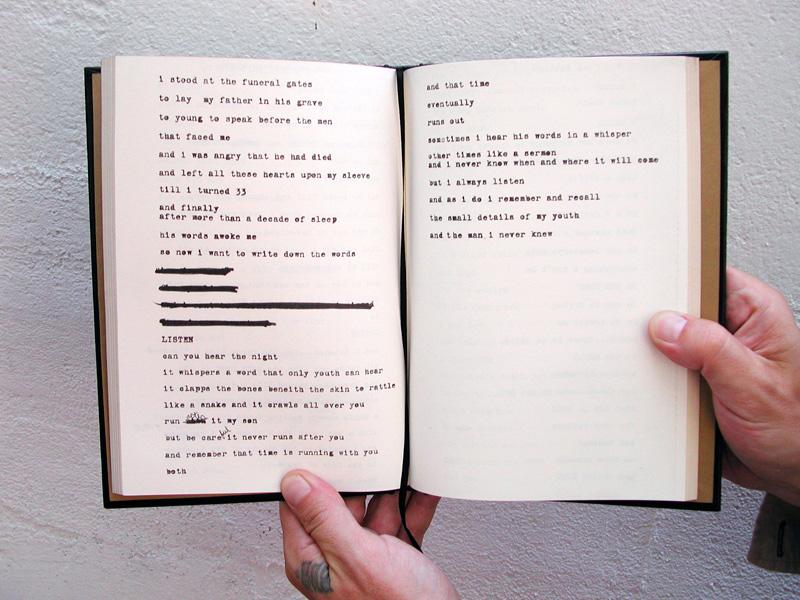 i stood at the funeral gates
to lay my father in his grave
to young to speak before the men
that faced me
and i was angry that he had died
and left all these hearts upon my sleeve
till i turned 33
and finally
after more than a decade of sleep
his words awoke me
so now i want to write down the words
LISTEN
can you hear the night
it whispers a word that only youth can hear
it clapps the bones beneith the skin to rattle
like a snake and it crawls all over you
run with it my son
but be care ful it never runs after you
and remember that time is running with you
both
and that time
eventually
runs out
sometimes i hear his words in a whisper
other times like a sermon
and i never know when and where it will come
but i always listen
and as i do i remember and recall
the small details of my youth
and the man i never knew